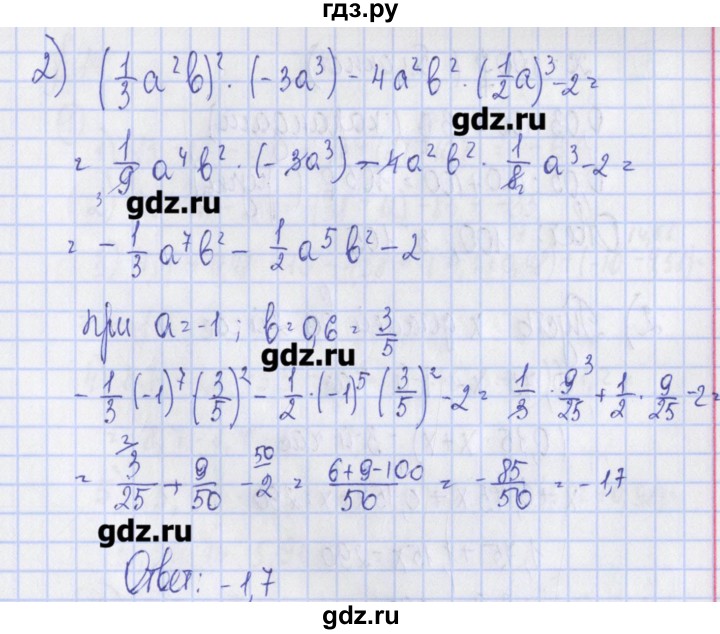 гдз.ру
2) (1/3 a²b)² · (-3a³) - 4a²b² · (1/2 a)³ - 2 =
gdz.ru
= 1/9 a⁴b² · (-3a³) - 4a²b² · 1/8 a³ - 2 =
3 2
gdz.ru
= - 1/3 a⁷b² - 1/2 a⁵b² - 2
при a = -1; b = 0,6 = 3/5
gdz.ru
- 1/3 (-1)⁷ (3/5)² - 1/2 · (-1)⁵ (3/5)² - 2 = 1/3 · 9³/25 + 1/2 · 9/25 - 2 =
= ²⁄3/25 + 9/50 - ⁵⁰⁄2 = (6+9-100)/50 = - 85/50 = -1,7
gdz.ru
Ответ: -1,7
gdz.ru